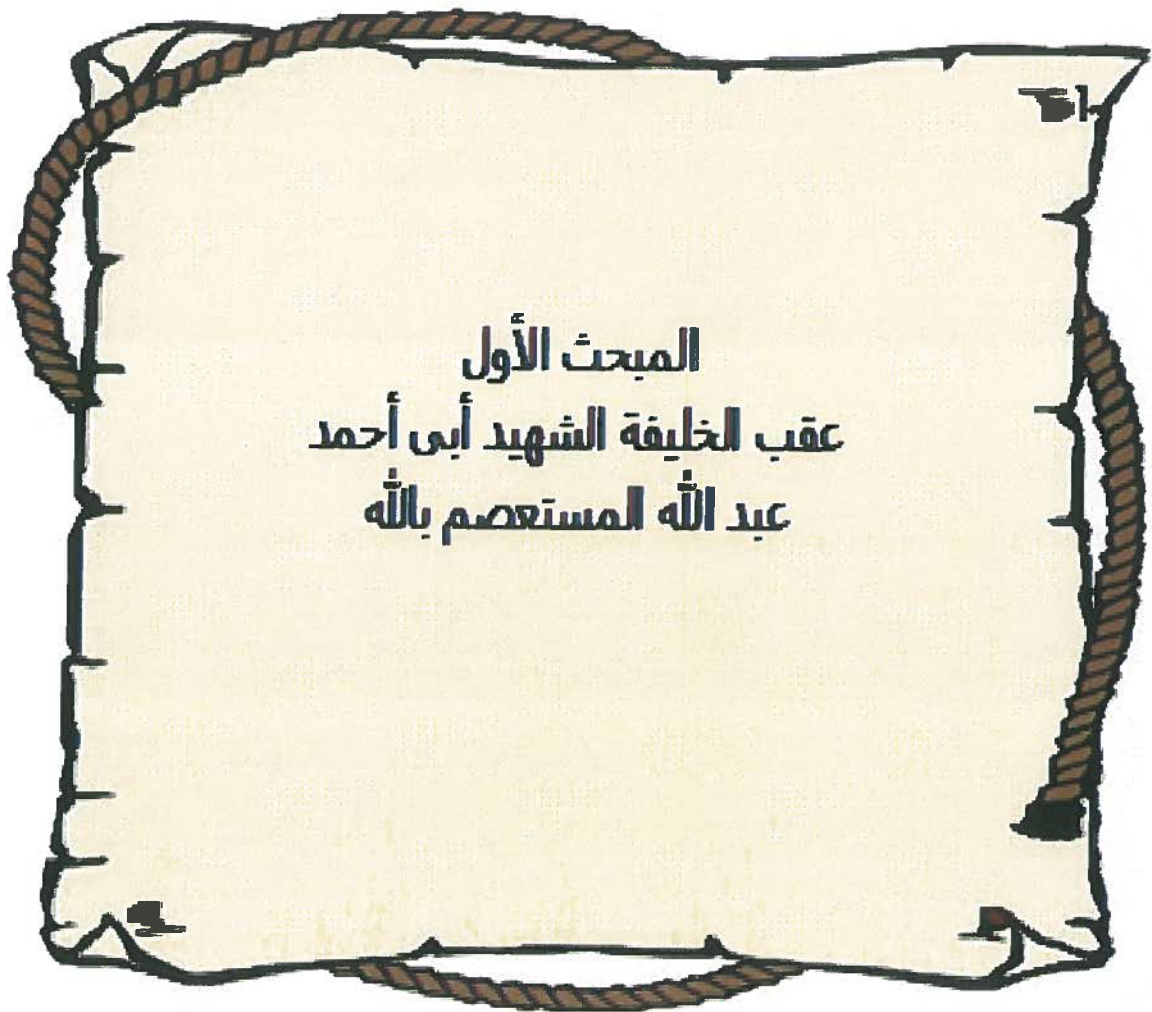 المبحث الأول
عقب الخليفة الشهيد أبى أحمد
عبد الله المستعصم بالله